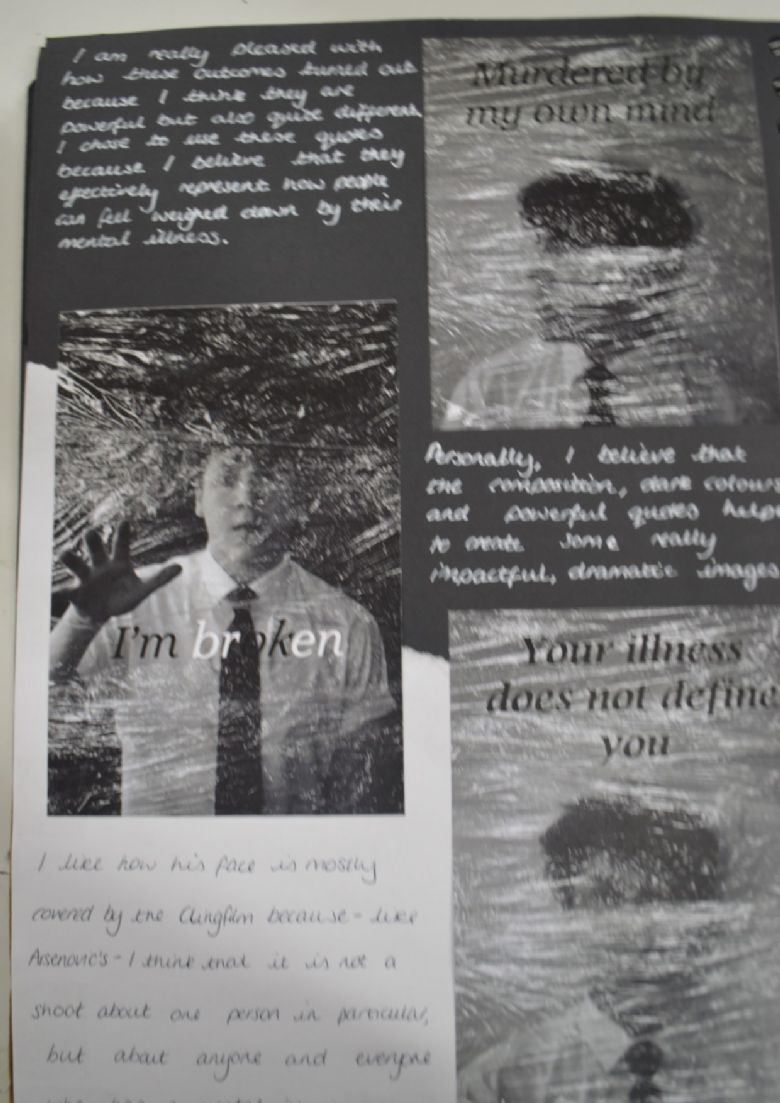 I am really pleased with
how these outcomes turned out
because I think they are
powerful but also quite different.
I chose to use these quotes
because I believe that they
effectively represent how people
can feel weighed down by their
mental illness.
Murdered by
my own mind
I'm broken
Personally, I believe that
the composition, dark colours
and powerful quotes help
to create some really
impactful, dramatic images
Your illness
does not define
you
I like how his face is mostly
covered by the Clingfilm because - like
Arsenovic's - I think that it is not a
shoot about one person in particular,
but about anyone and everyone
who has a mental